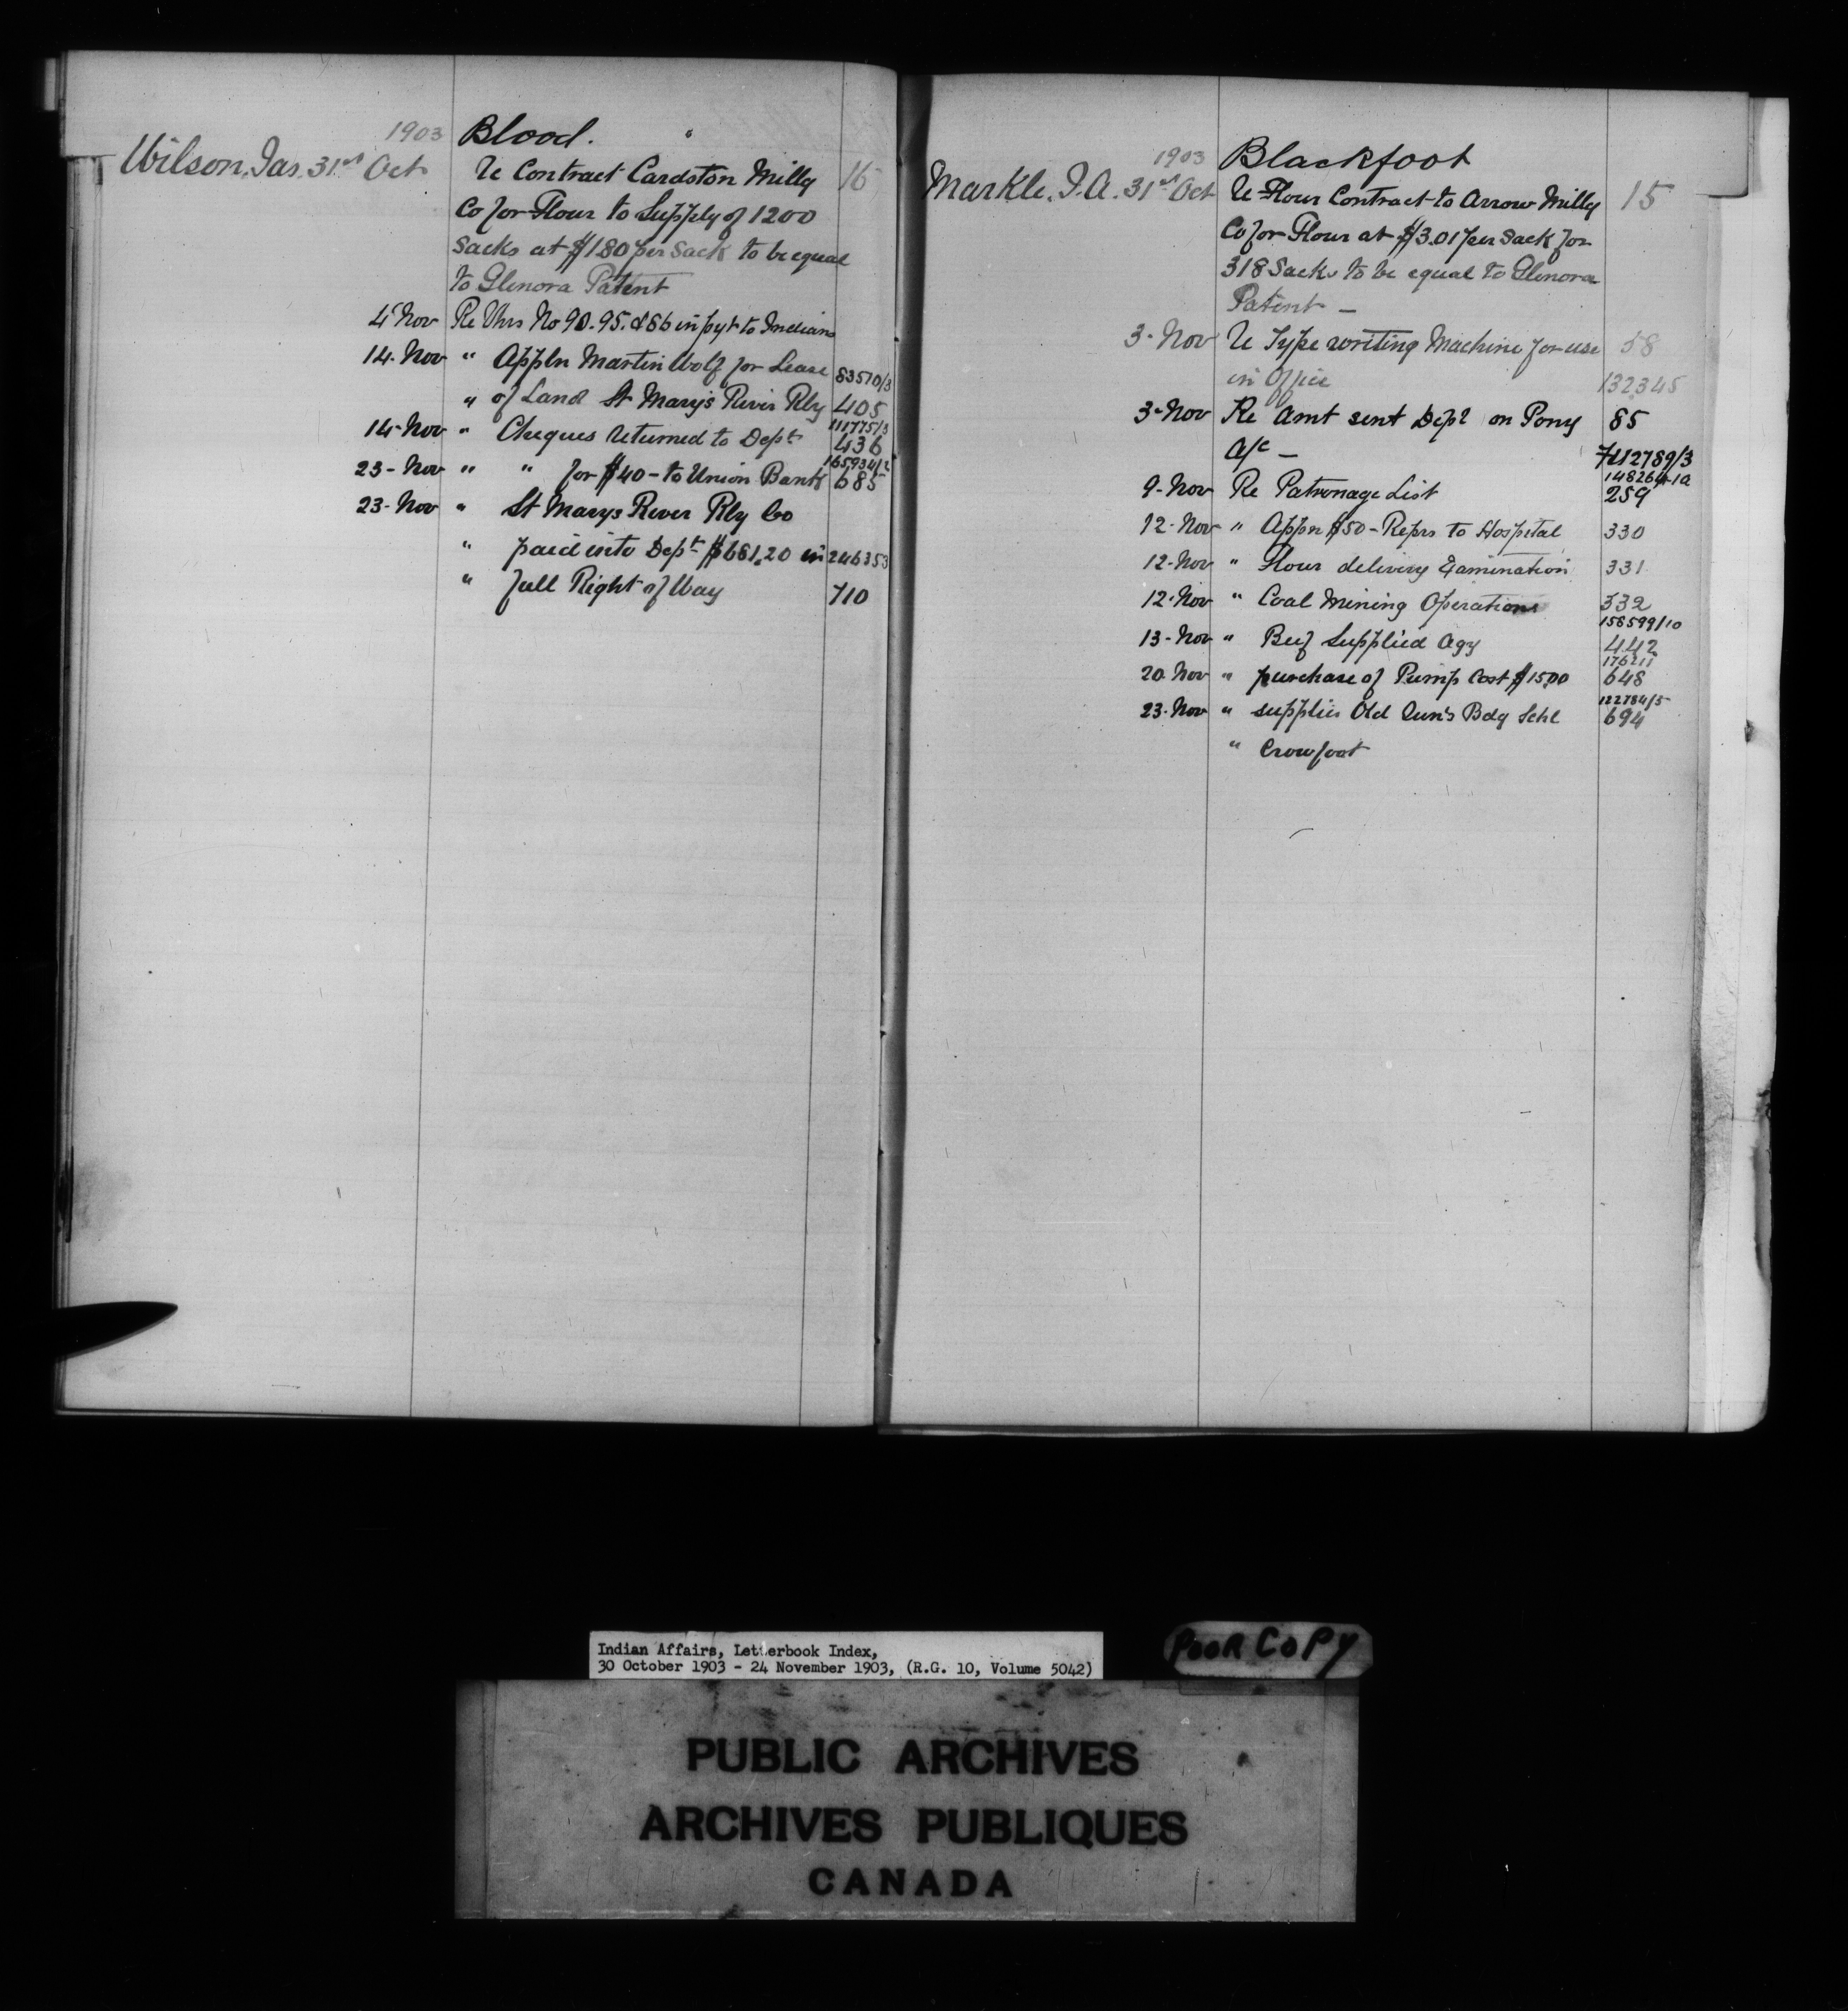 1903 Blood.
Wilson, Jas. 31st Oct Re Contract Cardston Millg 16
Co for Flour to Supply of 1200
Sacks at $1.80 per Sack to be equal
to Glenora Patent
4 Nov Re Vhrs No 90. 95. & 86 in pyt to Indians
14. Nov " Appln Martin Wolf for Lease 83570/3
" of Land St Mary's River Rly 405
111775/3
14. Nov " Cheques returned to Dept 436
165934/2
23 - Nov " " for $40 - to Union Bank 685
23 - Nov " St Marys River Rly Co
" paid into Dept $681.20 in 246353
" full Right of Way 710
1903 Blackfoot
Markle. J. A. 31st Oct Re Flour Contract to Arrow Millg 15
Co for Flour at $3.01 per Sack for
318 Sacks to be equal to Glenora
Patent -
3 - Nov Re Type writing Machine for use 58
in Office 132345
3 - Nov Re Amt sent Dept on Pony 85
a/c - 112789/3
148264-1a
9 - Nov Re Patronage List 259
12 - Nov " Appn $50 - Reprs to Hospital 330
12 - Nov " Flour delivery Examination 331
12 - Nov " Coal Mining Operations 332
158599/10
13 - Nov " Beef Supplied Agy 442
176211
20 Nov " purchase of Pump Cost $15.00 648
122784/5
23 - Nov " supplies Old Sun's Bdg Schl 694
" Crowfoot
Indian Affairs, Letterbook Index,
30 October 1903 - 24 November 1903, (R.G. 10, Volume 5042)
POOR COPY
PUBLIC ARCHIVES
ARCHIVES PUBLIQUES
CANADA